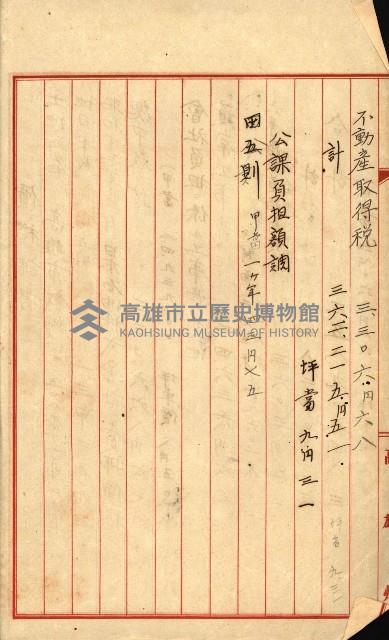 不動産取得税 三、三〇六円六八
計 三六二、二一五円五一
坪當 九円三一
公課負担額調
田五則 甲當一ヶ年
高雄市立歷史博物館
KAOHSIUNG MUSEUM OF HISTORY
高雄州